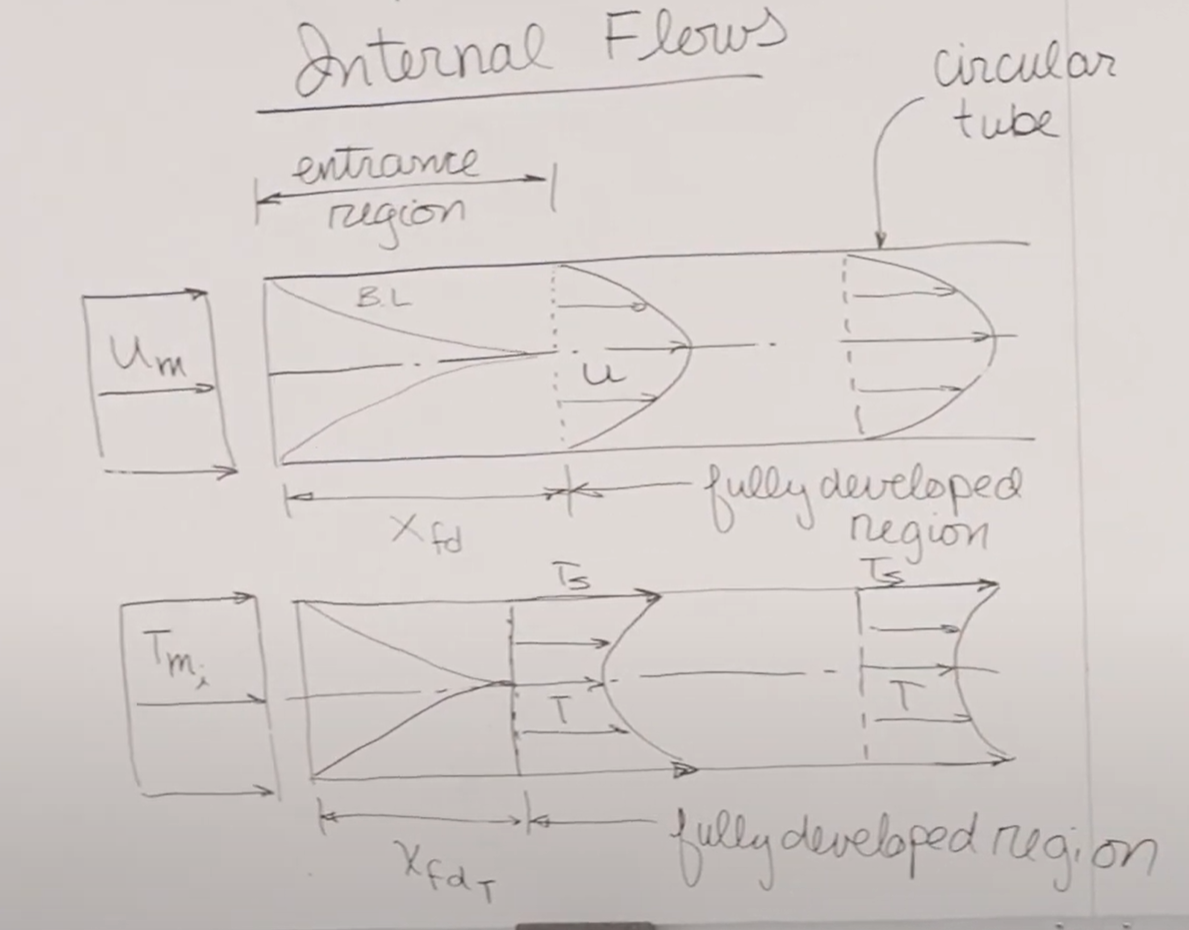 Internal Flows
circular
tube
entrance
region
B.L
Um
u
Xfd
fully developed
region
Ts
Ts
Tmi
T
T
XfdT
fully developed region